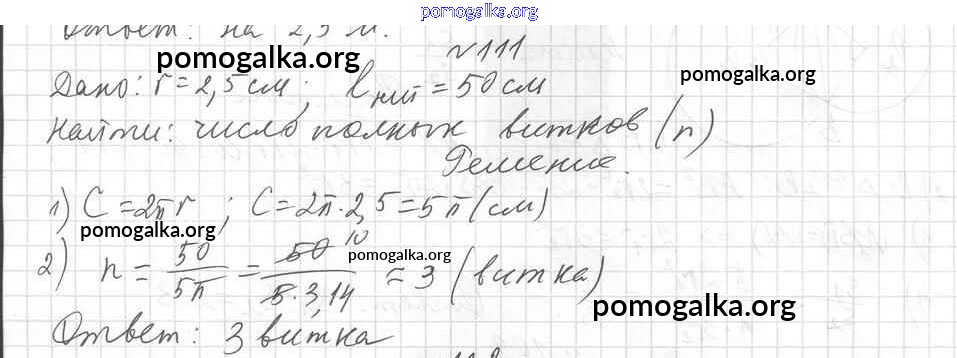 pomogalka.org
Ответ: на 2,5 м.
N 111
pomogalka.org
pomogalka.org
Дано: r = 2,5 см; ℓ нит = 50 см
Найти: число полных витков (n)
Решение.
1) C = 2πr ; C = 2π · 2,5 = 5π (см)
pomogalka.org
2) n = 50/5π = 50/5·3,14 10 ≈ 3 (витка)
pomogalka.org
pomogalka.org
Ответ: 3 витка